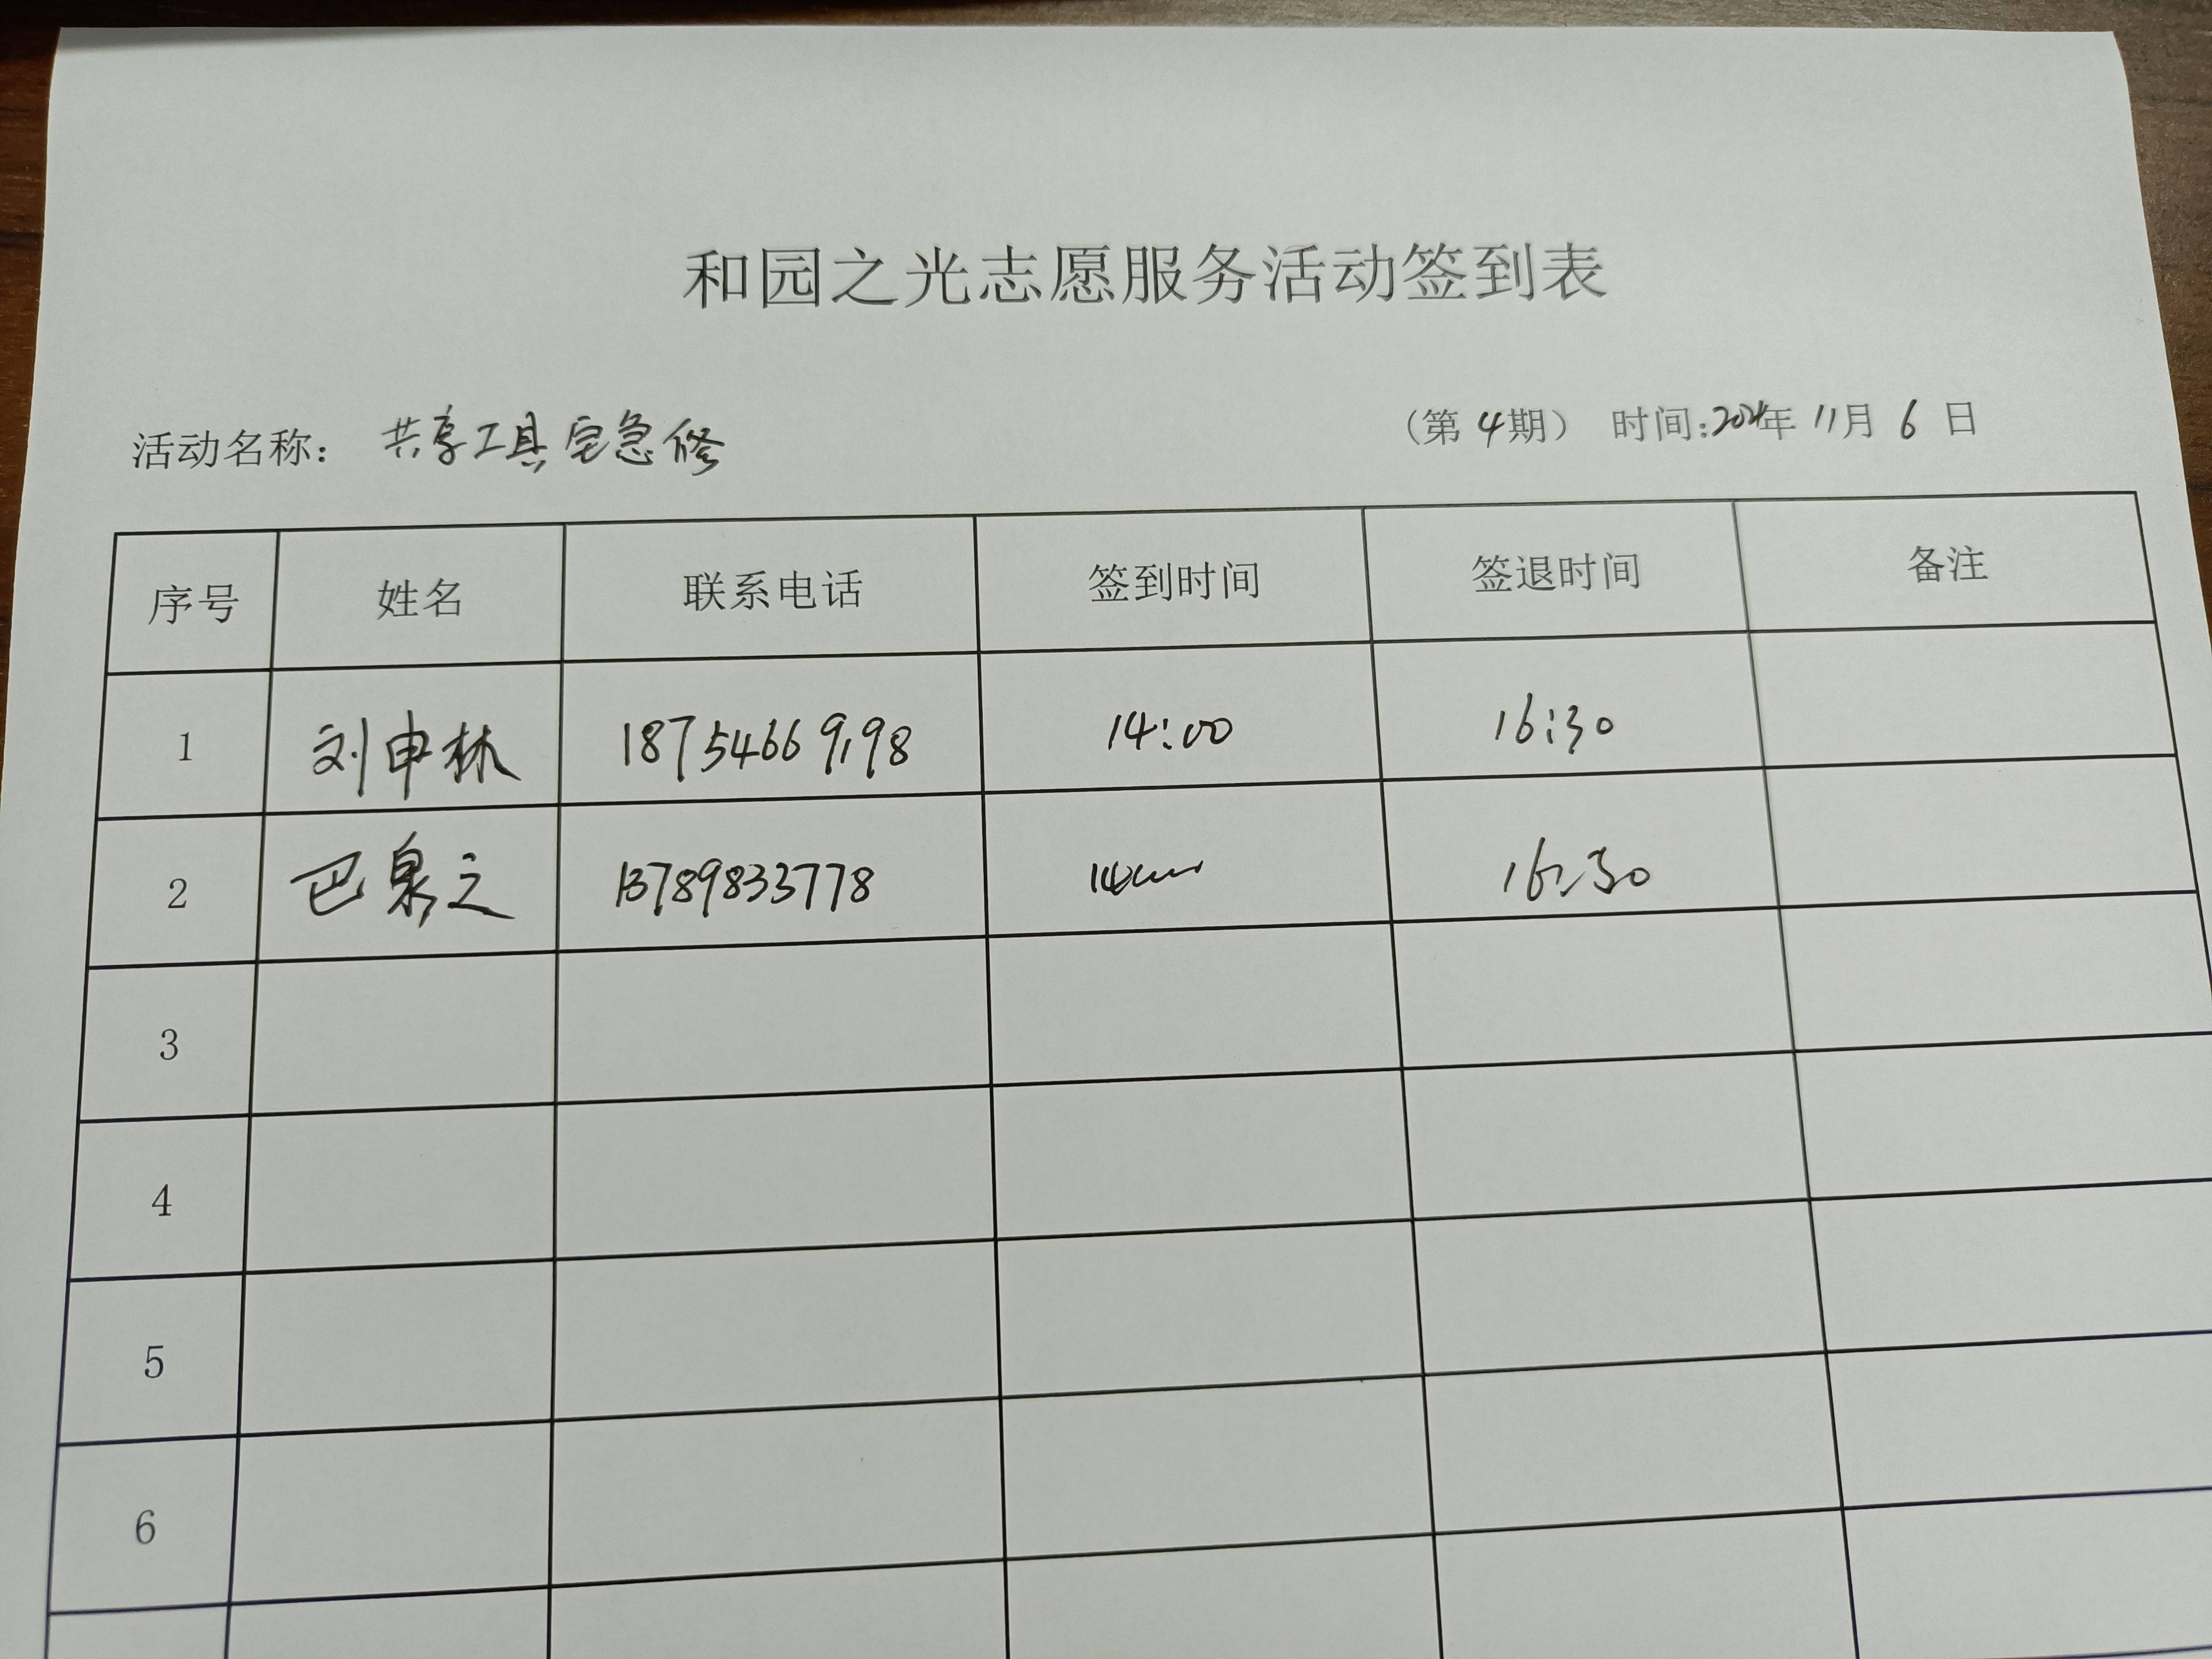 和园之光志愿服务活动签到表
活动名称： 共享工具宅急修 （第 4 期） 时间：2024年 11月 6 日
序号 姓名 联系电话 签到时间 签退时间 备注
1 刘申林 18754669198 14:00 16:30
2 巴泉之 13789833778 16:30
3
4
5
6